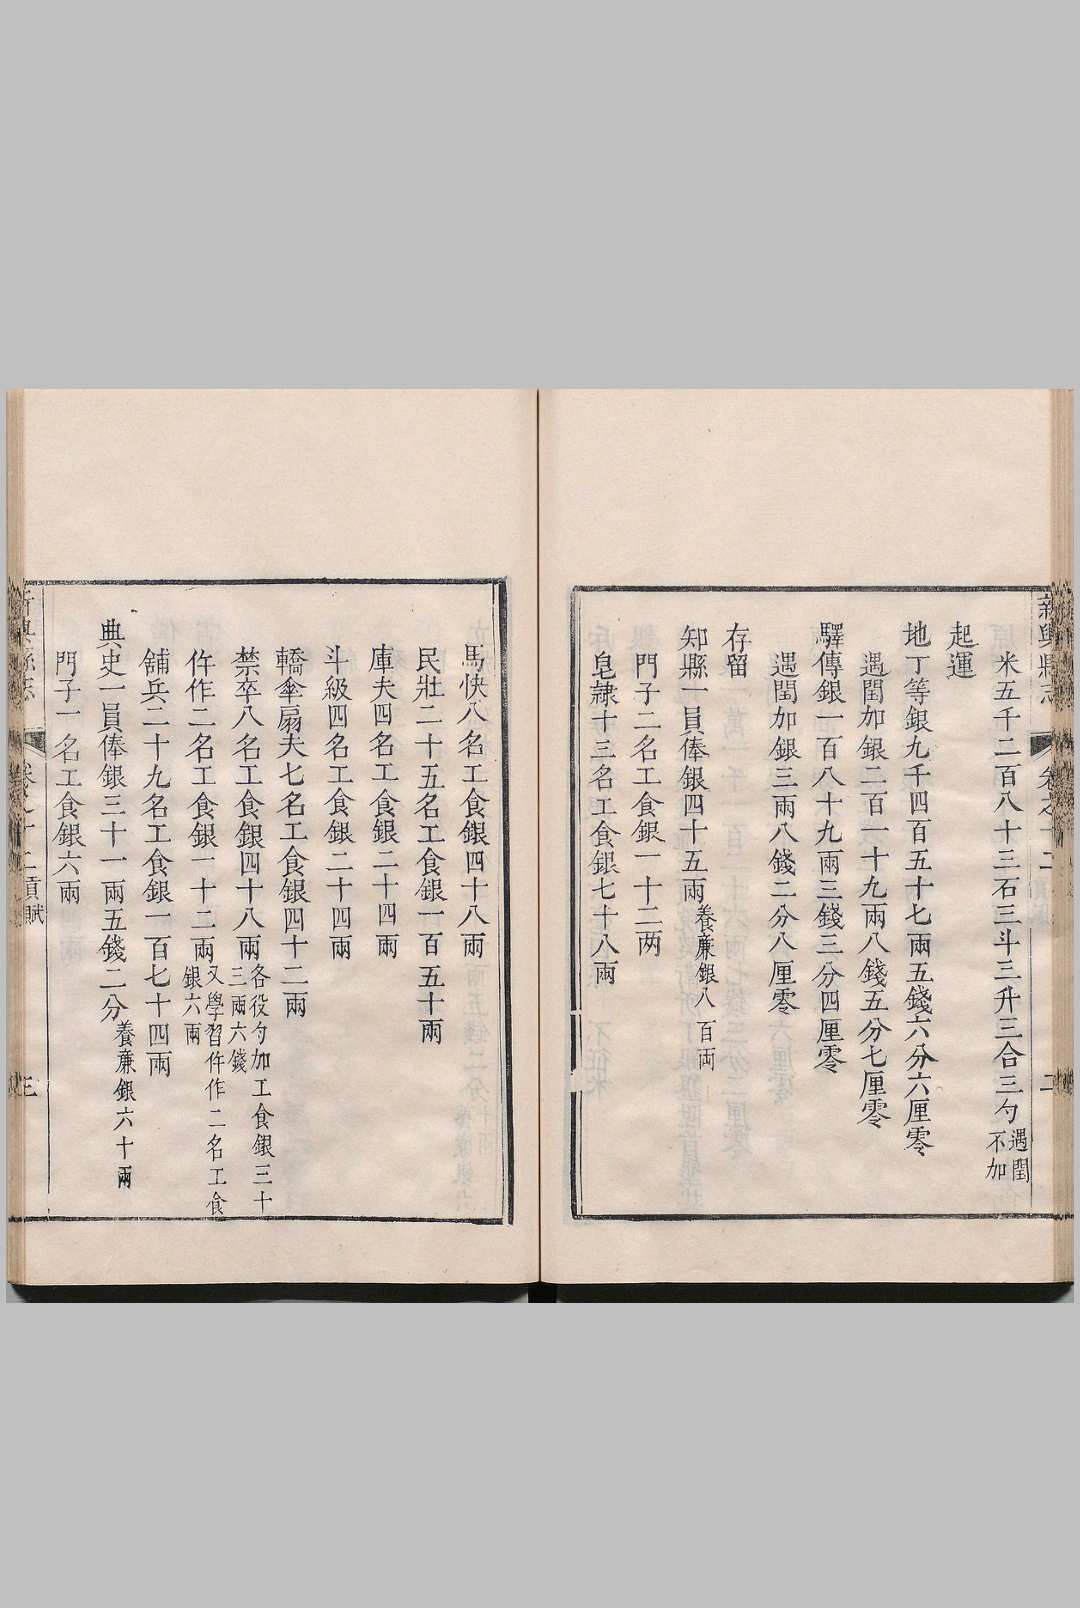 新興縣志
卷之十二
二
米五千二百八十三石三斗三升三合三勺遇閏不加
起運
地丁等銀九千四百五十七兩五錢六分六厘零
遇閏加銀二百一十九兩八錢五分七厘零
驛傳銀一百八十九兩三錢三分四厘零
遇閏加銀三兩八錢二分八厘零
存留
知縣一員俸銀四十五兩養廉銀八百両
門子二名工食銀一十二两
皂隷十三名工食銀七十八兩
馬快八名工食銀四十八兩
民壯二十五名工食銀一百五十兩
庫夫四名工食銀二十四兩
斗級四名工食銀二十四兩
轎傘扇夫七名工食銀四十二兩
禁卒八名工食銀四十八兩各役勻加工食銀三十三兩六錢
仵作二名工食銀一十二兩又學習仵作二名工食銀六兩
舖兵二十九名工食銀一百七十四兩
典史一員俸銀三十一兩五錢二分養廉銀六十兩
門子一名工食銀六兩
新興縣志
卷之十二貢賦
三